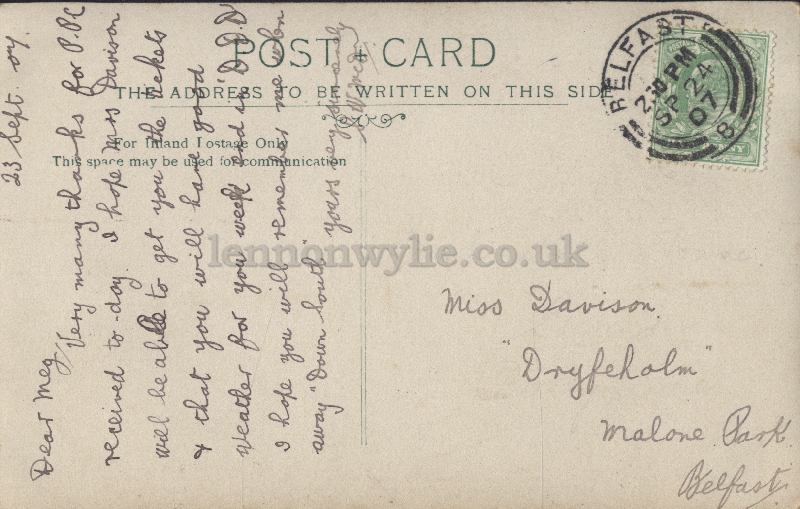 POST CARD
THE ADDRESS TO BE WRITTEN ON THIS SIDE
For Inland Postage Only
This space may be used for communication
BELFAST
2.30 PM
SP 24
07
8
23 Sept. 07
Dear Meg,
Very many thanks for P.P.C
received to-day. I hope Miss Davison
will be able to get you the tickets
& that you will have good
weather for you week end in
I hope you will remember me when
away "Down South" yours very sincerely
Miss Davison.
"Dryfeholm"
Malone Park
Belfast
lennonwylie.co.uk